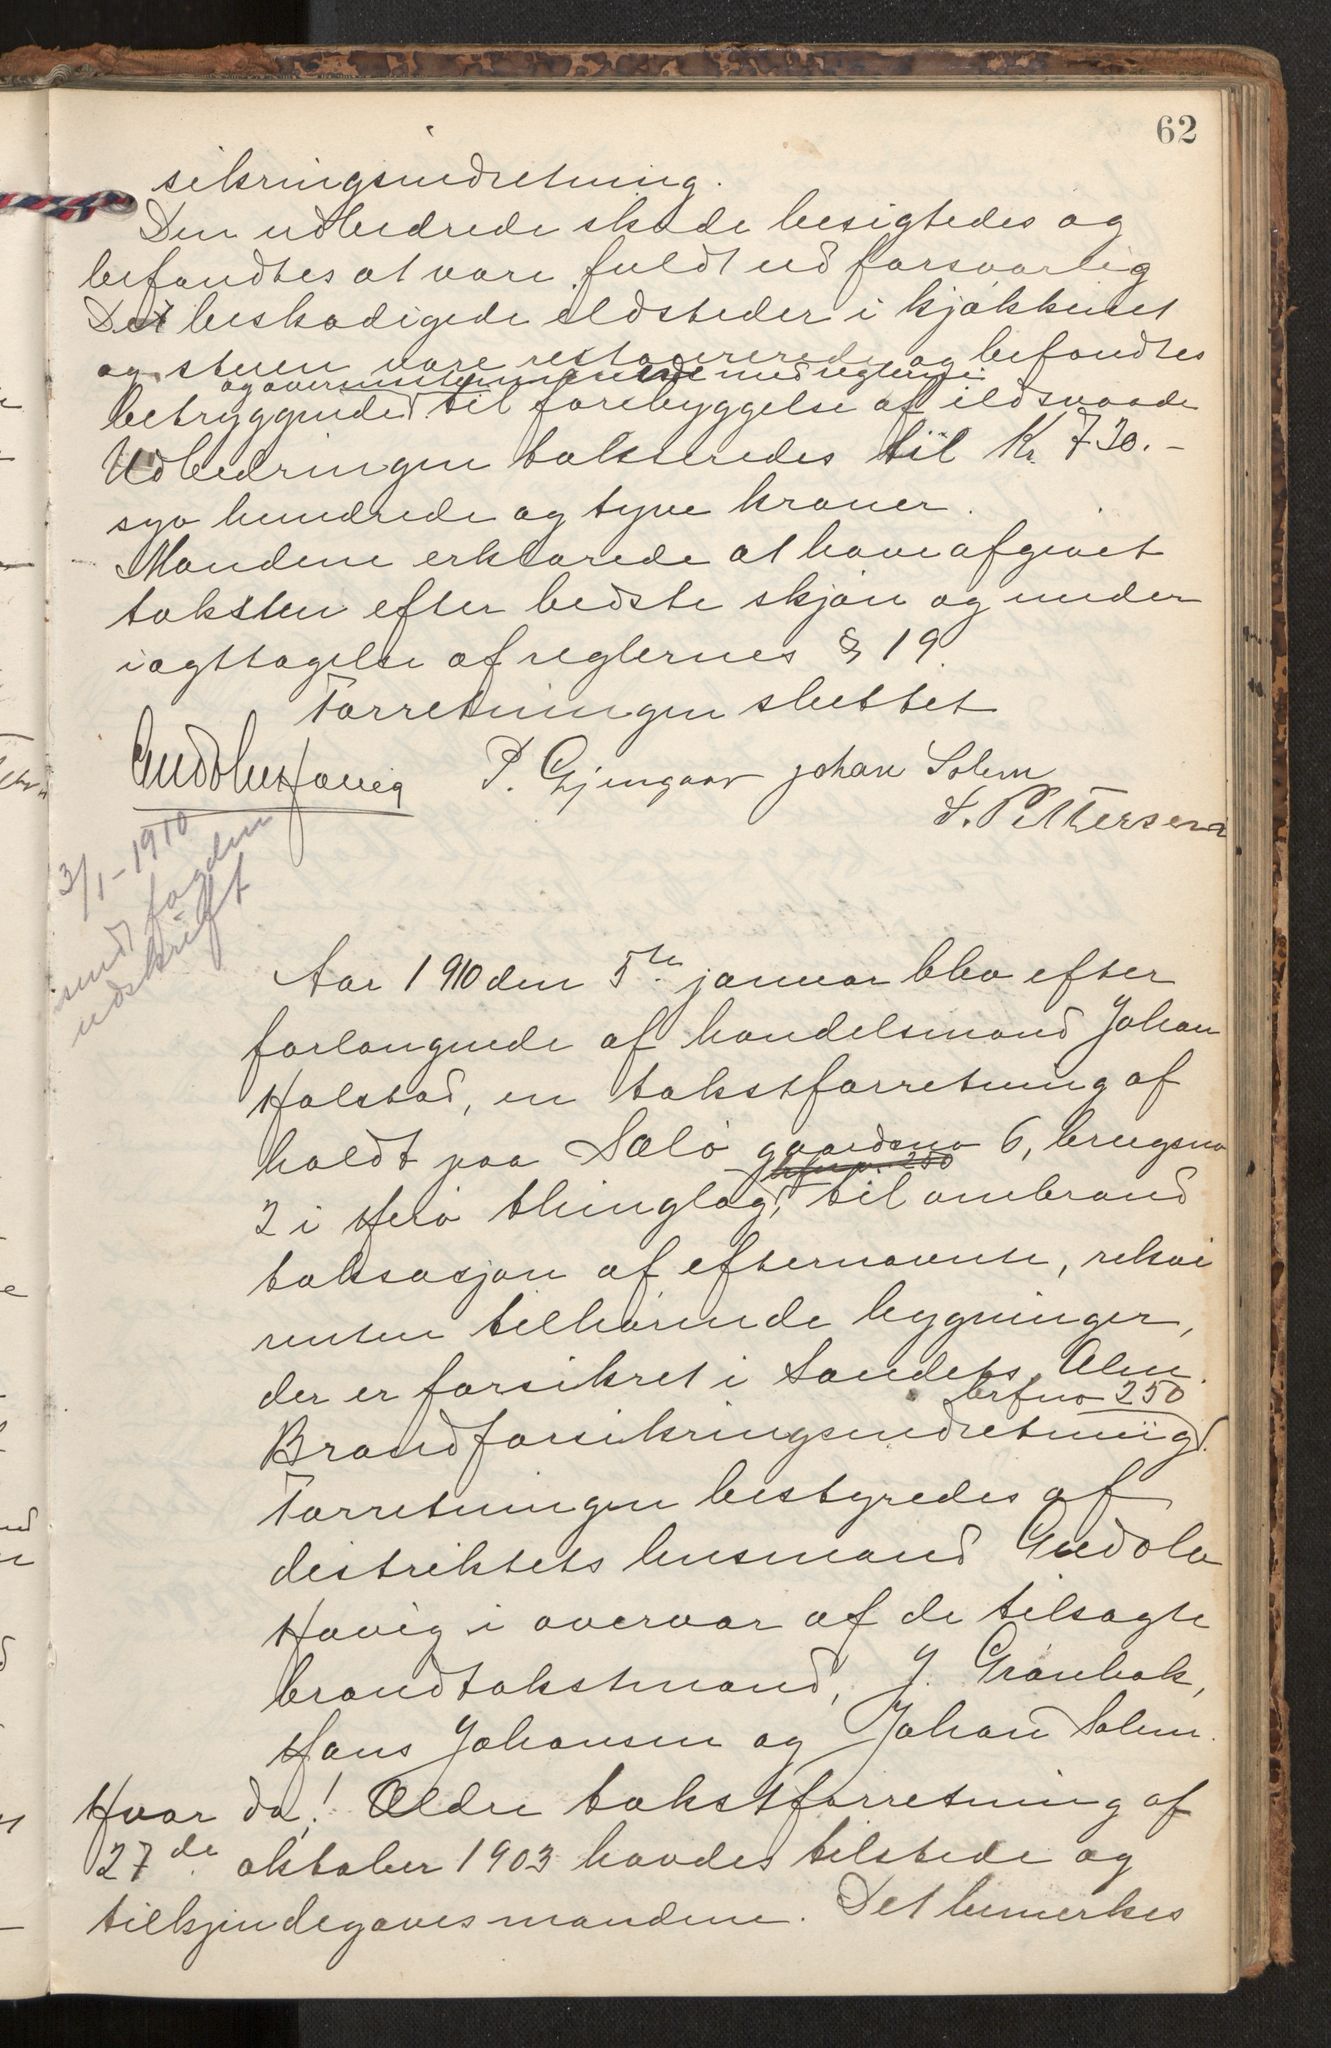 62
sikringsindretning.
Den udbedrede skade besigtedes og
befandtes at være fuldt ud forsvarlig
Det beskadigede ildsteder i kjøkkenet
og stuen vare restaurerede og befandtes
og overensstemmende med reglerne
betryggende til forebyggelse af ildsvaade
Udbedringen taksteredes til Kr 720.-
syv hundrede og tyve kroner.
Mændene erklærede at have afgivet
taksten efter bedste skjøn og under
iagttagelse af reglernes § 19.
Forretningen sluttet
Gudolu Høvig P. Gjengaar Johan Solem
Pettersen
3/1-1910
sendt fogden
udskrift
Aar 1910 den 5te januar blev efter
forlangende af handelsmand Johan
Halstad, en takstforretning af
holdt paa Sælø gaardsno 6, brugsno
brfno. 250
2 i Herø thinglag, til ombrand
taksasjon af efternævnte, rekvi
renten tilhørende bygninger,
der er forsikret i Landets Alm.
brfno 250
Brandforsikringsindretning.
Forretningen bestyredes af
distriktets lensmand Gudolu
Høvig i overvær af de tilsagte
brandtakstmænd, J. Grønbæk,
Hans Johansen og Johan Solem.
Hvor da! Ældre takstforretning af
27de oktober 1903 havdes tilstede og
tilkjendegaves mændene. Det bemerkes